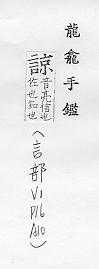 龍龕手鑑
諒音亮信也
佐也知也
(言部V1P16A10)